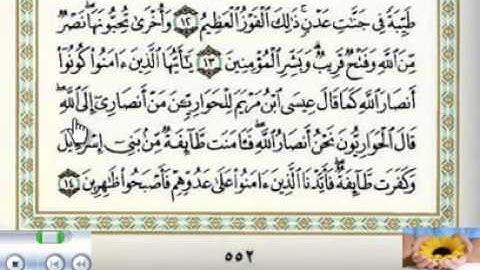 طَيِّبَةً فِى جَنَّـٰتِ عَدْنٍ ۚ ذَٰلِكَ ٱلْفَوْزُ ٱلْعَظِيمُ ۝١٢ وَأُخْرَىٰ تُحِبُّونَهَا ۖ نَصْرٌ
مِّنَ ٱللَّهِ وَفَتْحٌ قَرِيبٌ ۗ وَبَشِّرِ ٱلْمُؤْمِنِينَ ۝١٣ يَـٰٓأَيُّهَا ٱلَّذِينَ ءَامَنُوا۟ كُونُوٓا۟
أَنصَارَ ٱللَّهِ كَمَا قَالَ عِيسَى ٱبْنُ مَرْيَمَ لِلْحَوَارِيِّـۧنَ مَنْ أَنصَارِىٓ إِلَى ٱللَّهِ ۖ
قَالَ ٱلْحَوَارِيُّونَ نَحْنُ أَنصَارُ ٱللَّهِ ۖ فَـَٔامَنَت طَّآئِفَةٌ مِّنۢ بَنِىٓ إِسْرَٰٓءِيلَ
وَكَفَرَت طَّآئِفَةٌ ۖ فَأَيَّدْنَا ٱلَّذِينَ ءَامَنُوا۟ عَلَىٰ عَدُوِّهِمْ فَأَصْبَحُوا۟ ظَـٰهِرِينَ ۝١٤
٥٥٢